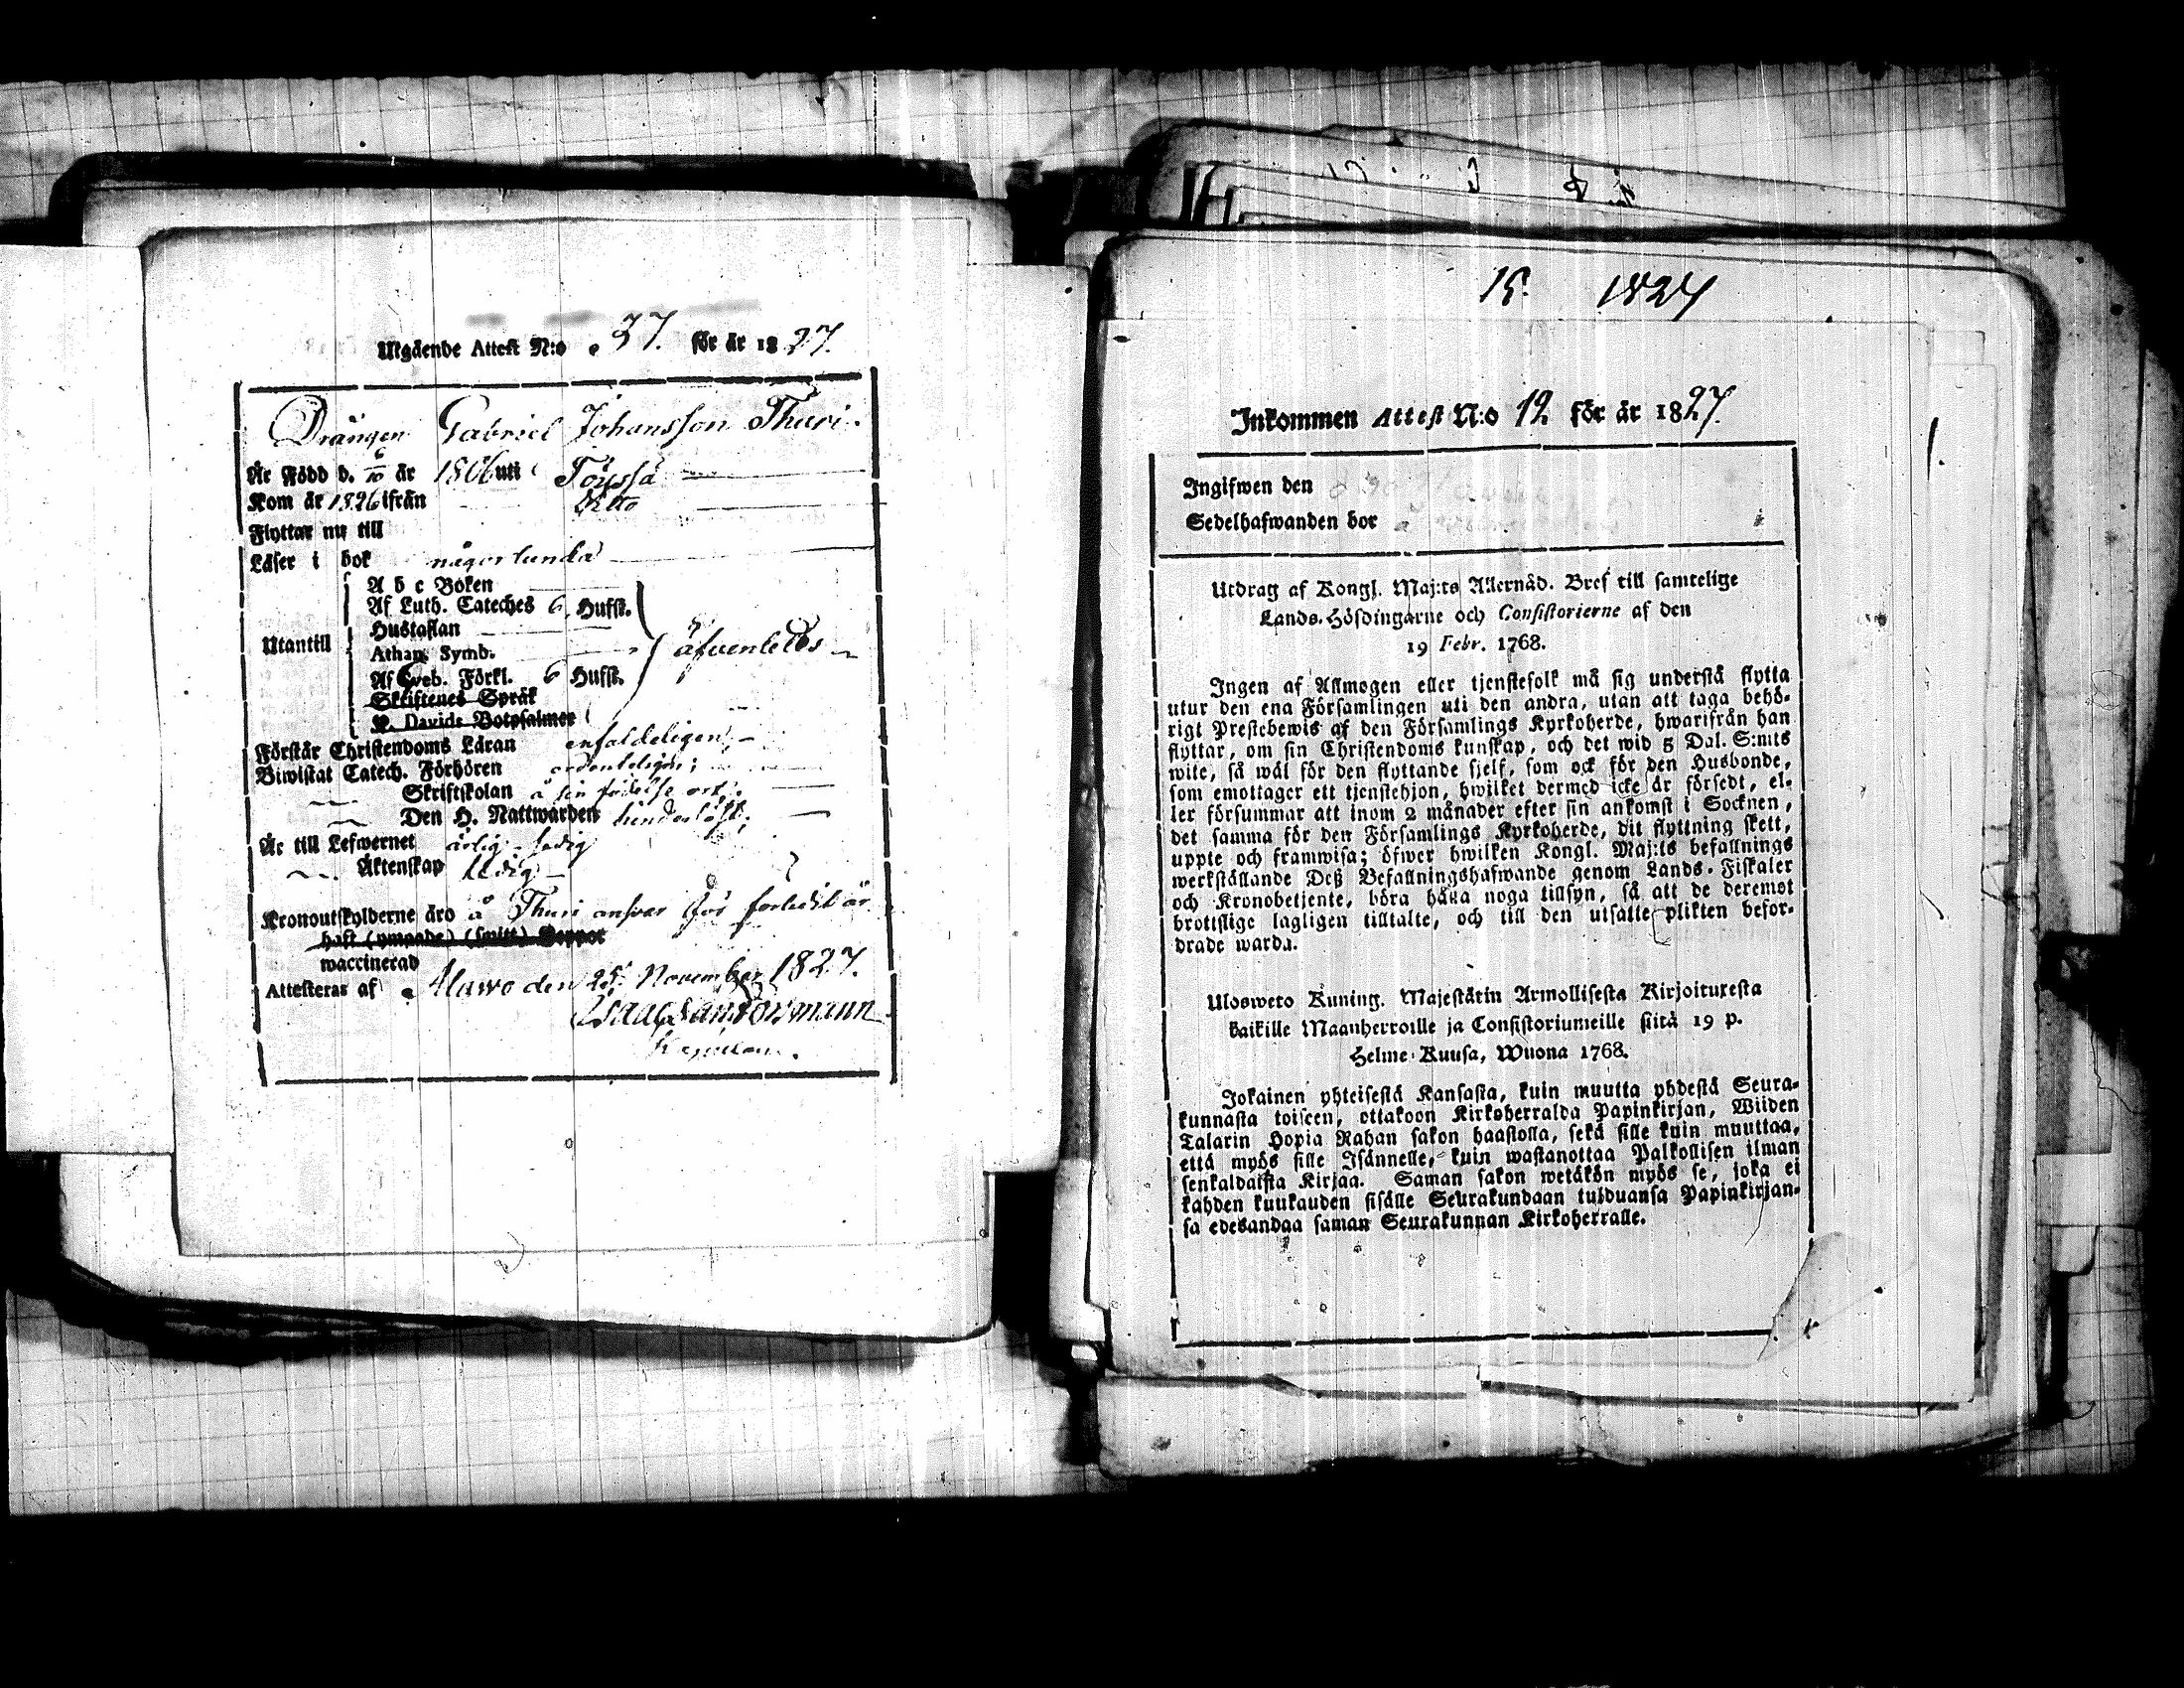 Utgående Attest N:o 37. för år 1827.
Drängen Gabriel Johansson Thuri.
Är Född d. 6/10 år 1806 uti Töysä
Kom år 1826 ifrån Ditto
Flyttar nu till
Läser i bok någorlunda
A b c Boken
Af Luth. Cateches 6 Hufst.
Hustaflan
Utantill
Athan. Symb.
äfvenledes
Af Sveb. Förkl. 6 Hufst.
Skriftenes Språk
K. Davids Botpsalmer
Förstår Christendoms Läran enfaldeligen;
Biwistat Catech. Förhören ordenteligen;
Skriftskolan å sin födelse ort;
Den H. Nattwarden
Är till Lefwernet ärlig
Äktenskap ledig
Kronoutskylderne äro å Thuri ansvar för
haft (ympade) (smitt) Koppor
waccinerad
Attesteras af Alawo den 25 November 1827.
Isaac
15. 1827
Inkommen Attest N:o 12 för år 1827.
1.
Ingifwen den
Sedelhafwanden bor å
Utdrag af Kongl. Maj:ts Allernåd. Bref till samtelige
Lands-Höfdingarne och Consistorierne af den
19 Febr. 1768.
Ingen af Allmogen eller tjenstefolk må sig understå flytta
utur den ena Församlingen uti den andra, utan att taga behö-
rigt Prestebewis af den Församlings Kyrkoherde, hwarifrån han
flyttar, om sin Christendoms kunskap, och det wid 5 Dal. S:mts
wite, så wäl för den flyttande sjelf, som ock för den Husbonde,
som emottager ett tjenstehjon, hwilket dermed icke är försedt, el-
ler försummar att inom 2 månader efter sin ankomst i Socknen,
det samma för den Församlings Kyrkoherde, dit flyttning skett,
uppte och framwisa; öfwer hwilken Kongl. Maj:ts befallnings
werkställande Deß Befallningshafwande genom Lands-Fiskaler
och Kronobetjente, böra hålla noga tillsyn, så att de deremot
brottslige lagligen tilltalte, och till den utsatte plikten befor-
drade warda.
Ulosweto Kuning. Majestätin Armollisesta Kirjoituxesta
kaikille Maanherroille ja Consistoriumeille siitä 19 p.
Helme-Kuusa, Wuona 1768.
Jokainen yhteisestä Kansasta, kuin muutta yhdestä Seura-
kunnasta toiseen, ottakoon Kirkoherralda Papinkirjan, Wiiden
Talarin Hopia Rahan sakon haastolla, sekä sille kuin muuttaa,
että myös sille Isännelle, kuin wastanottaa Palkollisen ilman
senkaldaista Kirjaa. Saman sakon wetäkön myös se, joka ei
kahden kuukauden sisälle Seurakundaan tulduansa Papinkirjan-
sa edesandaa saman Seurakunnan Kirkoherralle.